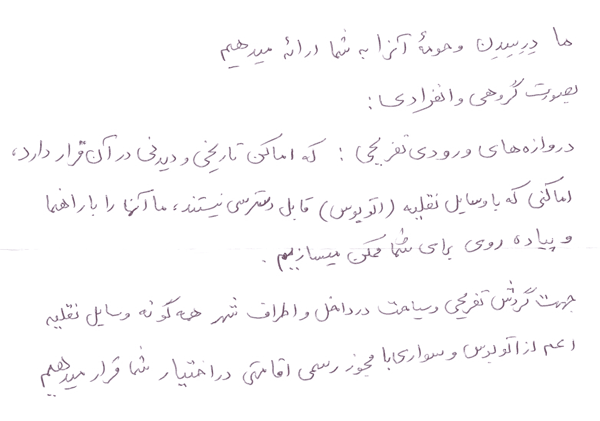 ما درسیدن وحومهٔ آنرا به شما ارائه میدهیم
بصورت گروهی و انفرادی:
دروازه‌های ورودی تفریحی: که اماکن تاریخی و دیدنی در آن قرار دارد،
اماکنی که با وسایل نقلیه (اتوبوس) قابل دسترسی نیستند، ما آنها را با راهنما
و پیاده روی برای شما ممکن میسازیم.
جهت گردش تفریحی وسیاحت درداخل و اطراف شهر همه گونه وسایل نقلیه
اعم از اتوبوس و سواری با مجوز رسمی اقامتی در اختیار شما قرار میدهیم